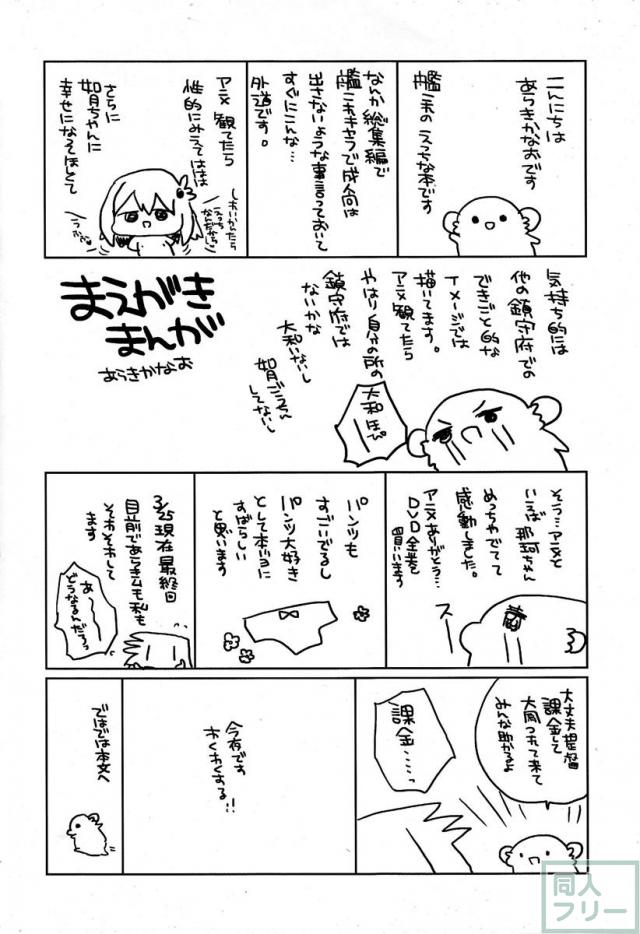 こんにちは
あらきかなおです
艦これのえっちな本です
なんか総集編で
艦これキャラで成人向は
出さないような事言っておいて
すぐにこんな…
外道です。
アニメ観てたら
性的にみえてはは
さらに
如月ちゃんに
幸せになってほしくて
しかいかんたら
えっち
なんだから
うふふ
まえがき
まんが
あらきかなお
気持ち的には
他の鎮守府での
できごと的な
イメージでは
描いてます。
アニメ観てたら
やはり自分の所の
鎮守府では
ないかな
大和いないし
如月ごえん
してないし
大和ほぴ
そう…アニメと
いえば那珂ちゃん
めっちゃでてて
感動しました。
アニメありがとう…
DVD全巻を
買います
スー
パンツも
すごいでるし
パンツ大好き
として本当に
すばらしい
と思います
3/25現在最終回
目前であらきムも私も
そわそわして
ます
あー
どうなるんだろっ
大丈夫提督
課金して
大和つれて来て
みんな助かるよ
課金……
今夜です
わくわくする!!
ではでは本文へ
同人
フリー